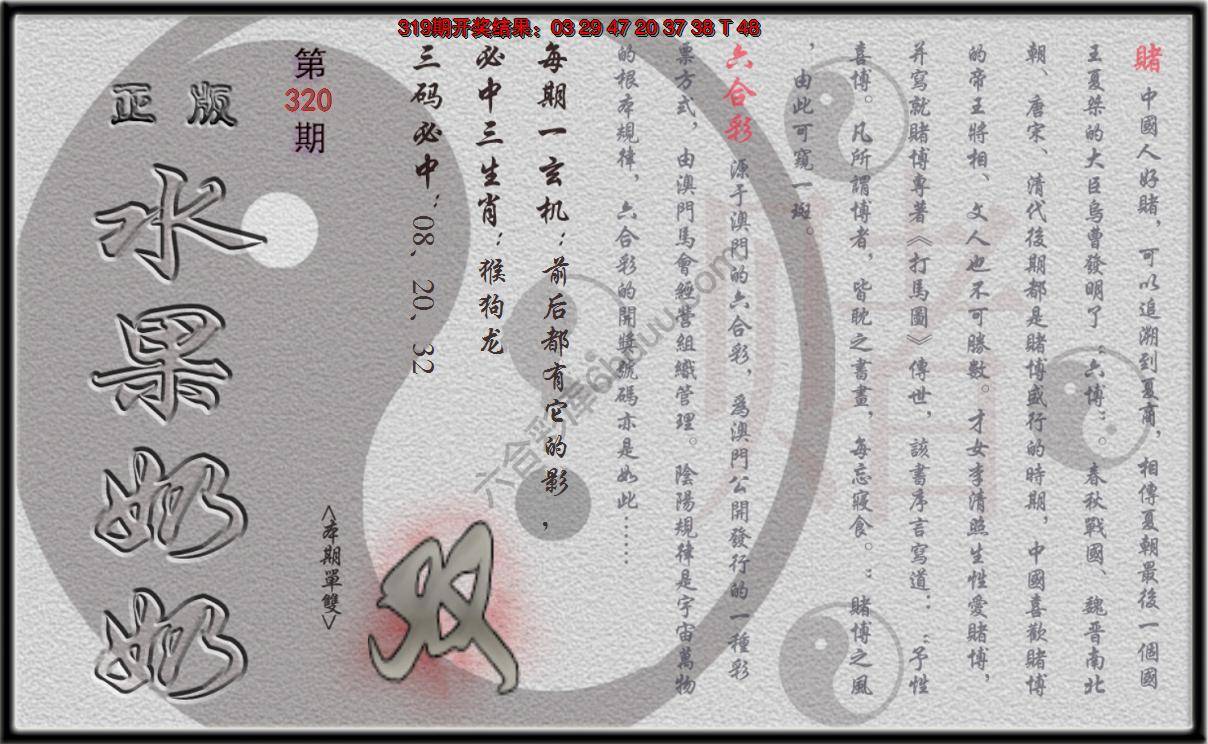 319期开奖结果：03 29 47 20 37 38 T 48
賭 中國人好賭，可以追溯到夏商，相傳夏朝最後一個國
王夏桀的大臣烏曹發明了“六博”。春秋戰國、魏晉南北
朝、唐宋、清代後期都是賭博盛行的時期，中國喜歡賭博
的帝王將相、文人也不可勝數。才女李清照生性愛賭博，
并寫就賭博專著《打馬圖》傳世，該書序言寫道：“予性
喜博。凡所謂博者，皆耽之書畫，每忘寢食。：賭博之風
，由此可窺一斑。
六合彩 源于澳門的六合彩，爲澳門公開發行的一種彩
票方式，由澳門馬會經營組織管理。陰陽規律是宇宙萬物
的根本規律，六合彩的開獎號碼亦是如此……
每期一玄机：前后都有它的影，
必中三生肖：猴狗龙
三码必中：08、20、32
双
<本期單雙>
第
320
期
正版
水果奶奶
六合彩库6hduu.com
赌